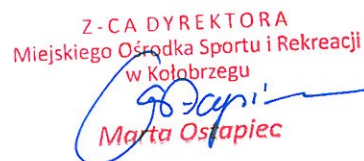 Z-CA DYREKTORA
Miejskiego Ośrodka Sportu i Rekreacji
w Kołobrzegu
Marta Ostapiec